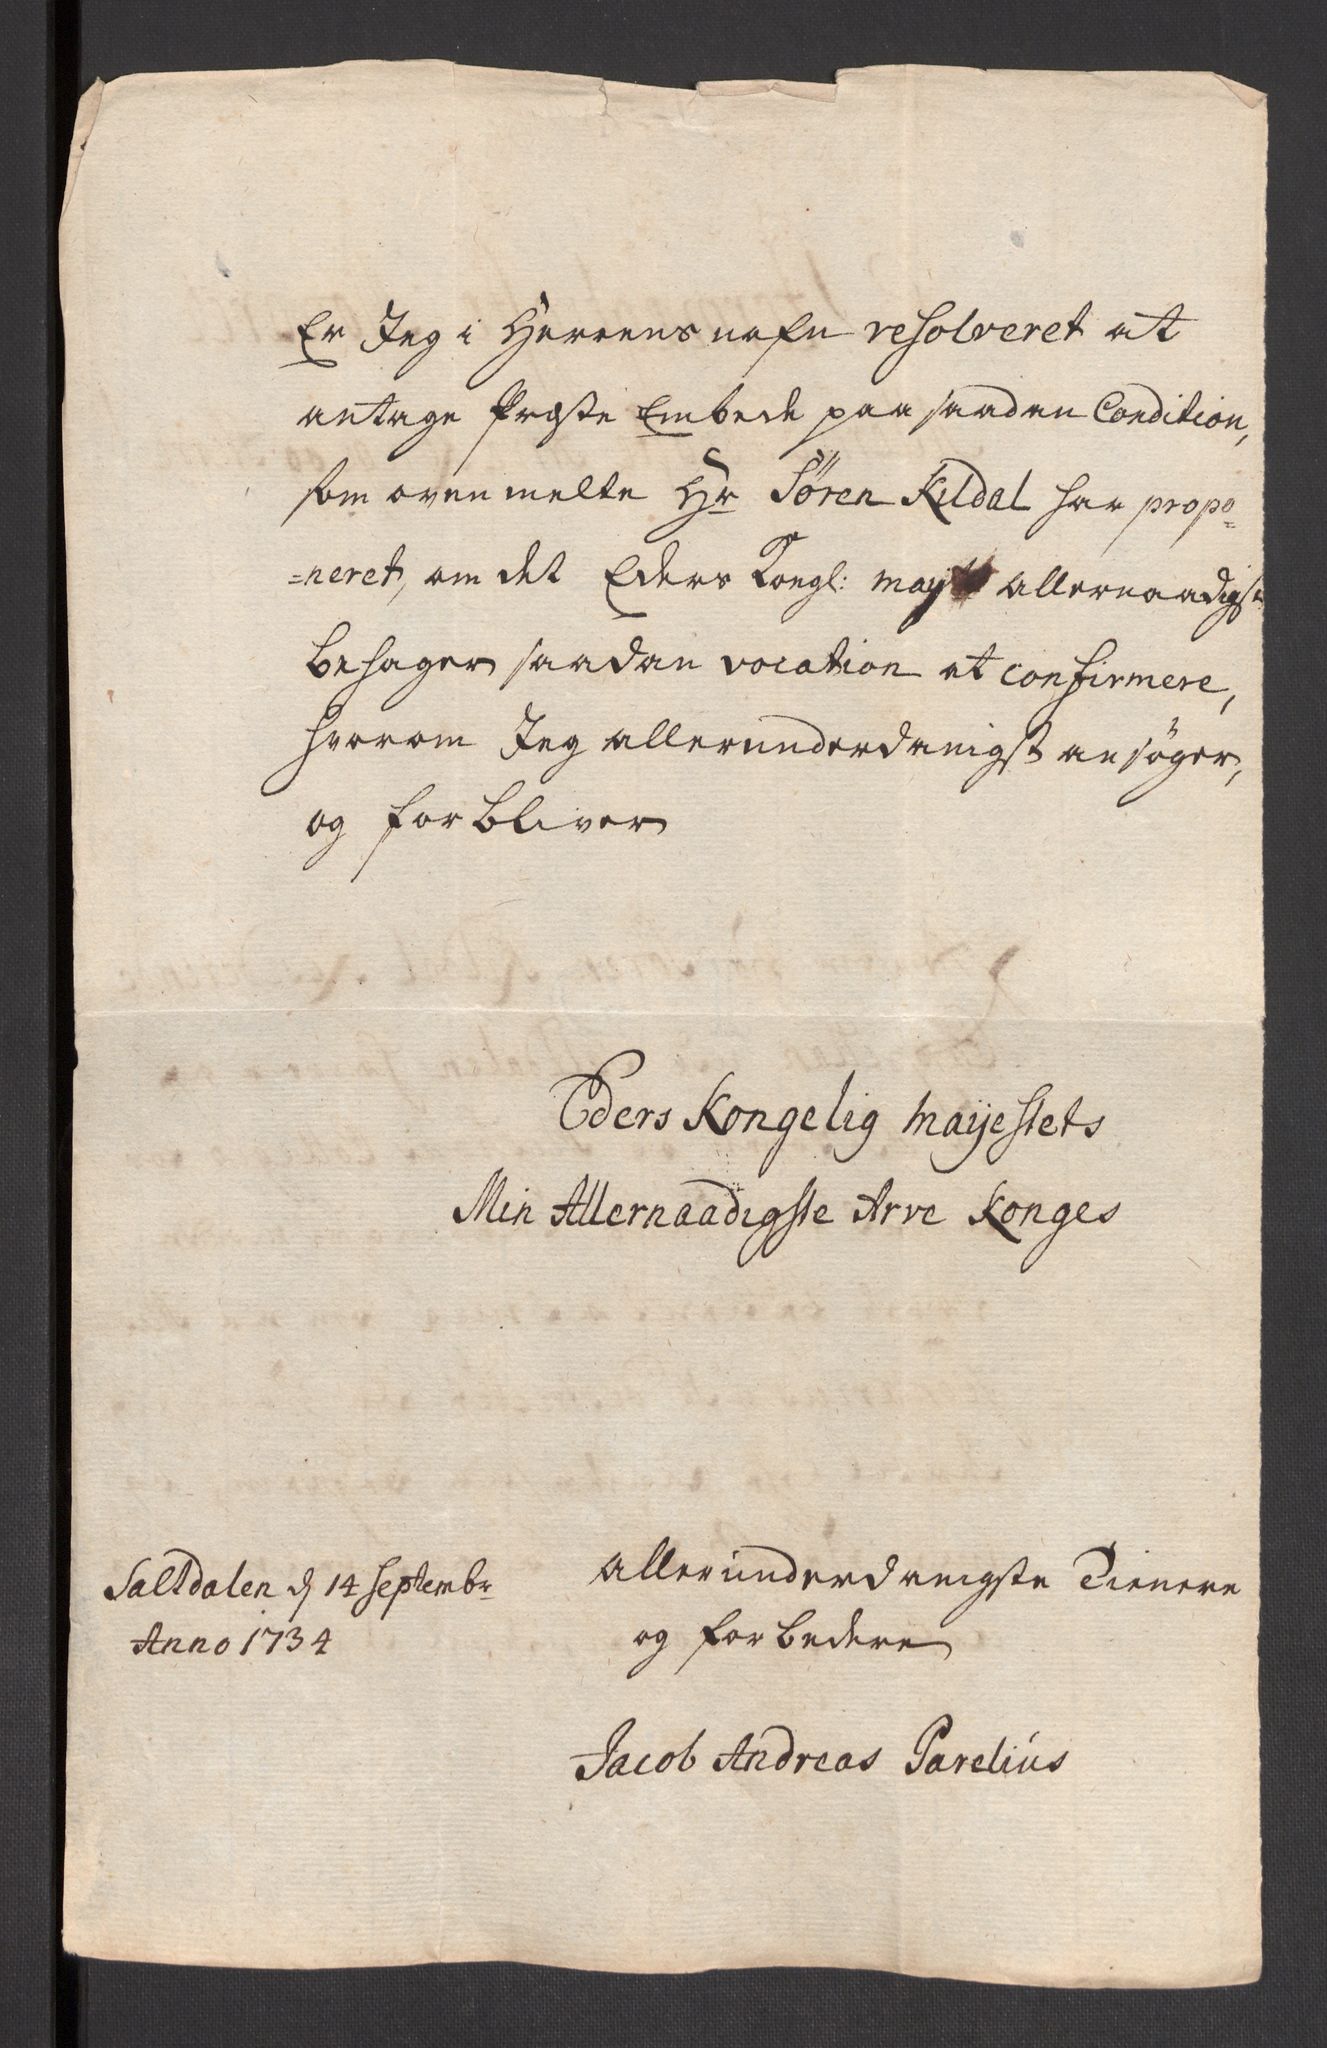 Er Jeg i Herrens nafn resolveret at
antage Præste Embede paa saadan Condition,
som ovenmelte Hr Søren Kildal har propo=
=neret, om det Eders Kongl: may allernaadigst
behager saadan vocation at confirmere,
hvorom Jeg allerunderdanigst ansøger,
og forbliver
Eders Kongelig Mayestets
Min Allernaadigste Arve Konges
Saltdalen d 14 Septembr
Anno 1734
allerunderdanigste Tienere
og forbedere
Jacob Andreas Parelius